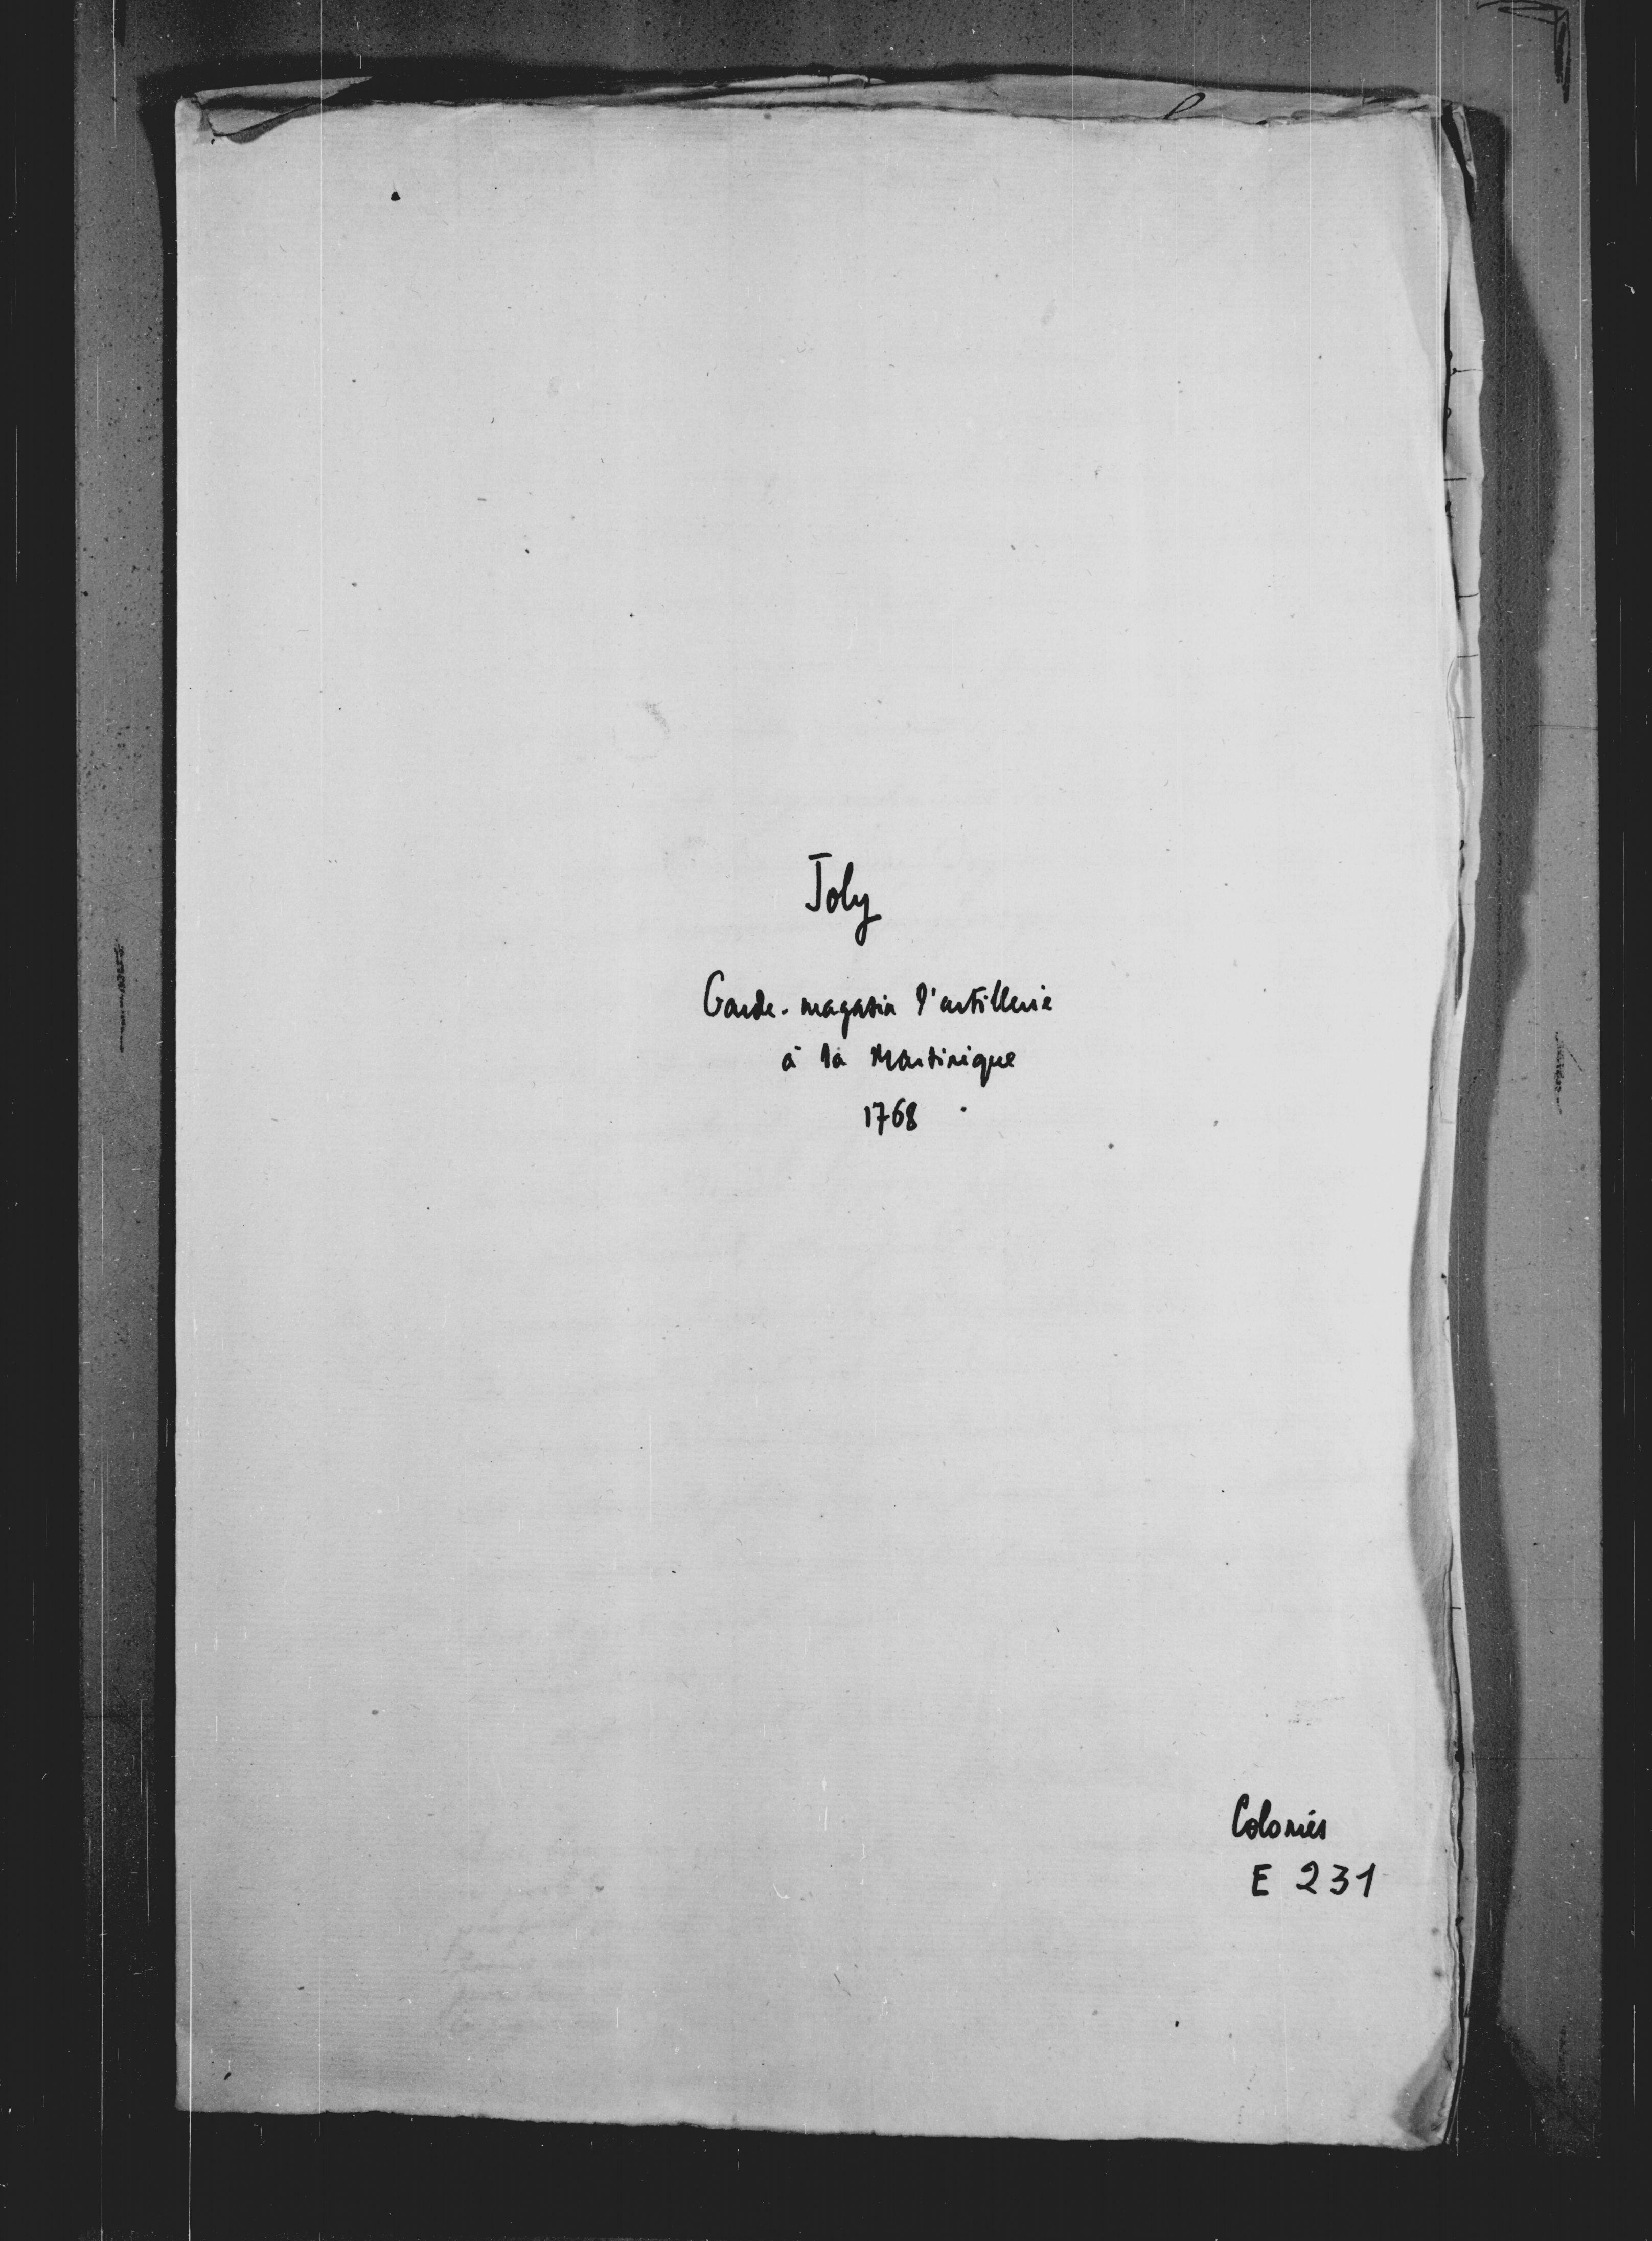 Joly
Garde-magasin d'artillerie
à la Martinique
1768
Colonies
E 231